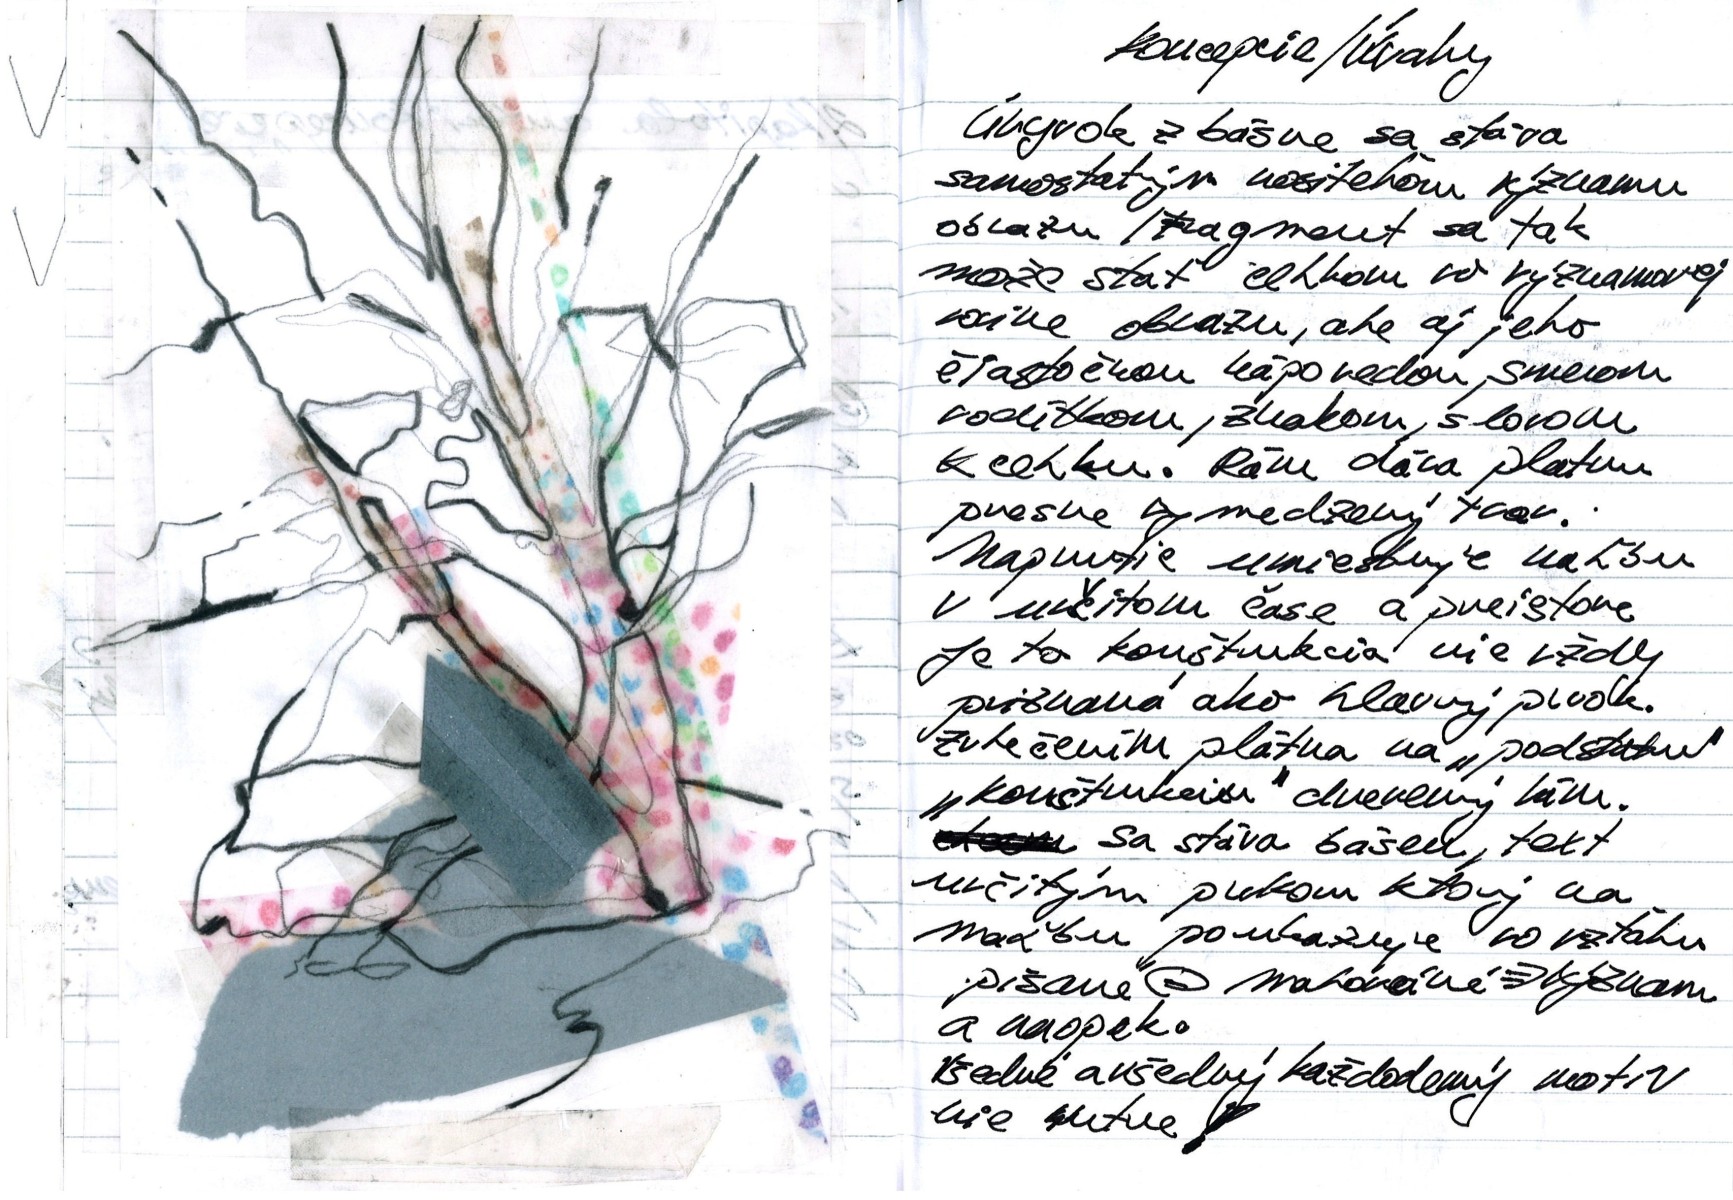 Koncepcie/Úvahy
Úryvok z básne sa stáva
samostatným nositeľom významu
obrazu / Fragment sa tak
može stať celkom vo významovej
rovine obrazu, ale aj jeho
čiastočkou nápovedou, smerom
vodítkom, znakom, slovom
k celku. Rám dáva plátnu
presne vymedzený tvar.
Napnutie umiestňuje maľbu
v určitom čase a priestore
Je to konštrukcia nie vždy
priznaná ako hlavný prvok.
Zvlečením plátna na „podstatu"
„konštrukciu" drevený rám.
sa stáva báseň, text
určitým prvkom ktorý na
maľbu poukazuje vo vzťahu
písané = maľované = význam
a naopak.
Všedné a všedný každodenný motív
nie nutne